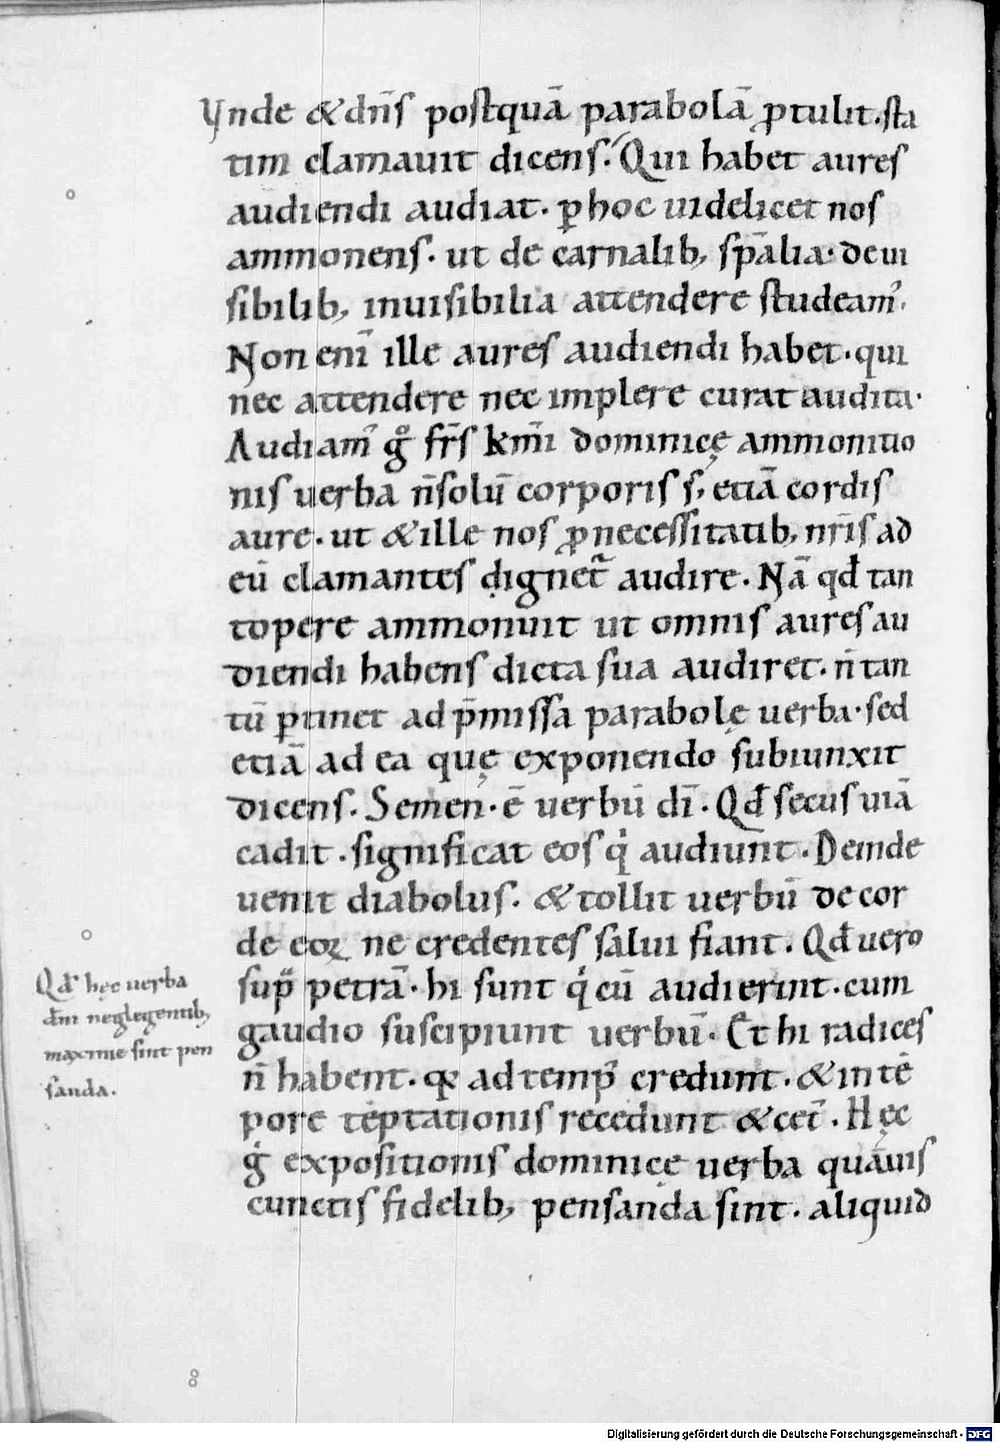 Vnde & dn̄s postquā parabolā ꝓtulit. sta
tim clamauit dicens. Qui habet aures
audiendi audiat. ꝑ hoc uidelicet nos
ammonens. ut de carnalib; sp̄alia. de ui
sibilib; inuisibilia attendere studeam᾿.
Non eni᾿ ille aures audiendi habet. qui
nec attendere nec implere curat audita.
Audiam᾿ gͦ fr̄s km̄i dominicę ammonitio
nis uerba n̄ solū corporis s; etiā cordis
aure. ut & ille nos ꝓ necessitatib; nr̄is ad
eū clamantes dignet᾿ audire. Nā qđ tan
topere ammonuit ut omnis aures au
diendi habens dicta sua audiret. n̄ tan
tū ꝑtinet ad p̄missā parabolę uerba. sed
etiā ad ea quę exponendo subiunxit
dicens. Semen. ē uerbū dī. Qđ secus uiā
cadit. significat eos qͥ audiunt. Deinde
uenit diabolus. & tollit uerbū de cor
de eoꝝ ne credentes salui fiant. Qđ uero
sup᾿ petrā. hi sunt qͥ cū audierint. cum
gaudio suscipiunt uerbū. Et hi radices
n̄ habent. qꝛ ad temp᾿ credunt. & in tē
pore tēptationis recedunt & cet᾿. Hęc
gͥ expositionis dominicę uerba quāuis
cunctis fidelib; pensanda sint. aliquid
Qđ hęc uerba
dn̄i neglegentib;
maxime sint pen
sanda.
8
Digitalisierung gefördert durch die Deutsche Forschungsgemeinschaft - DFG